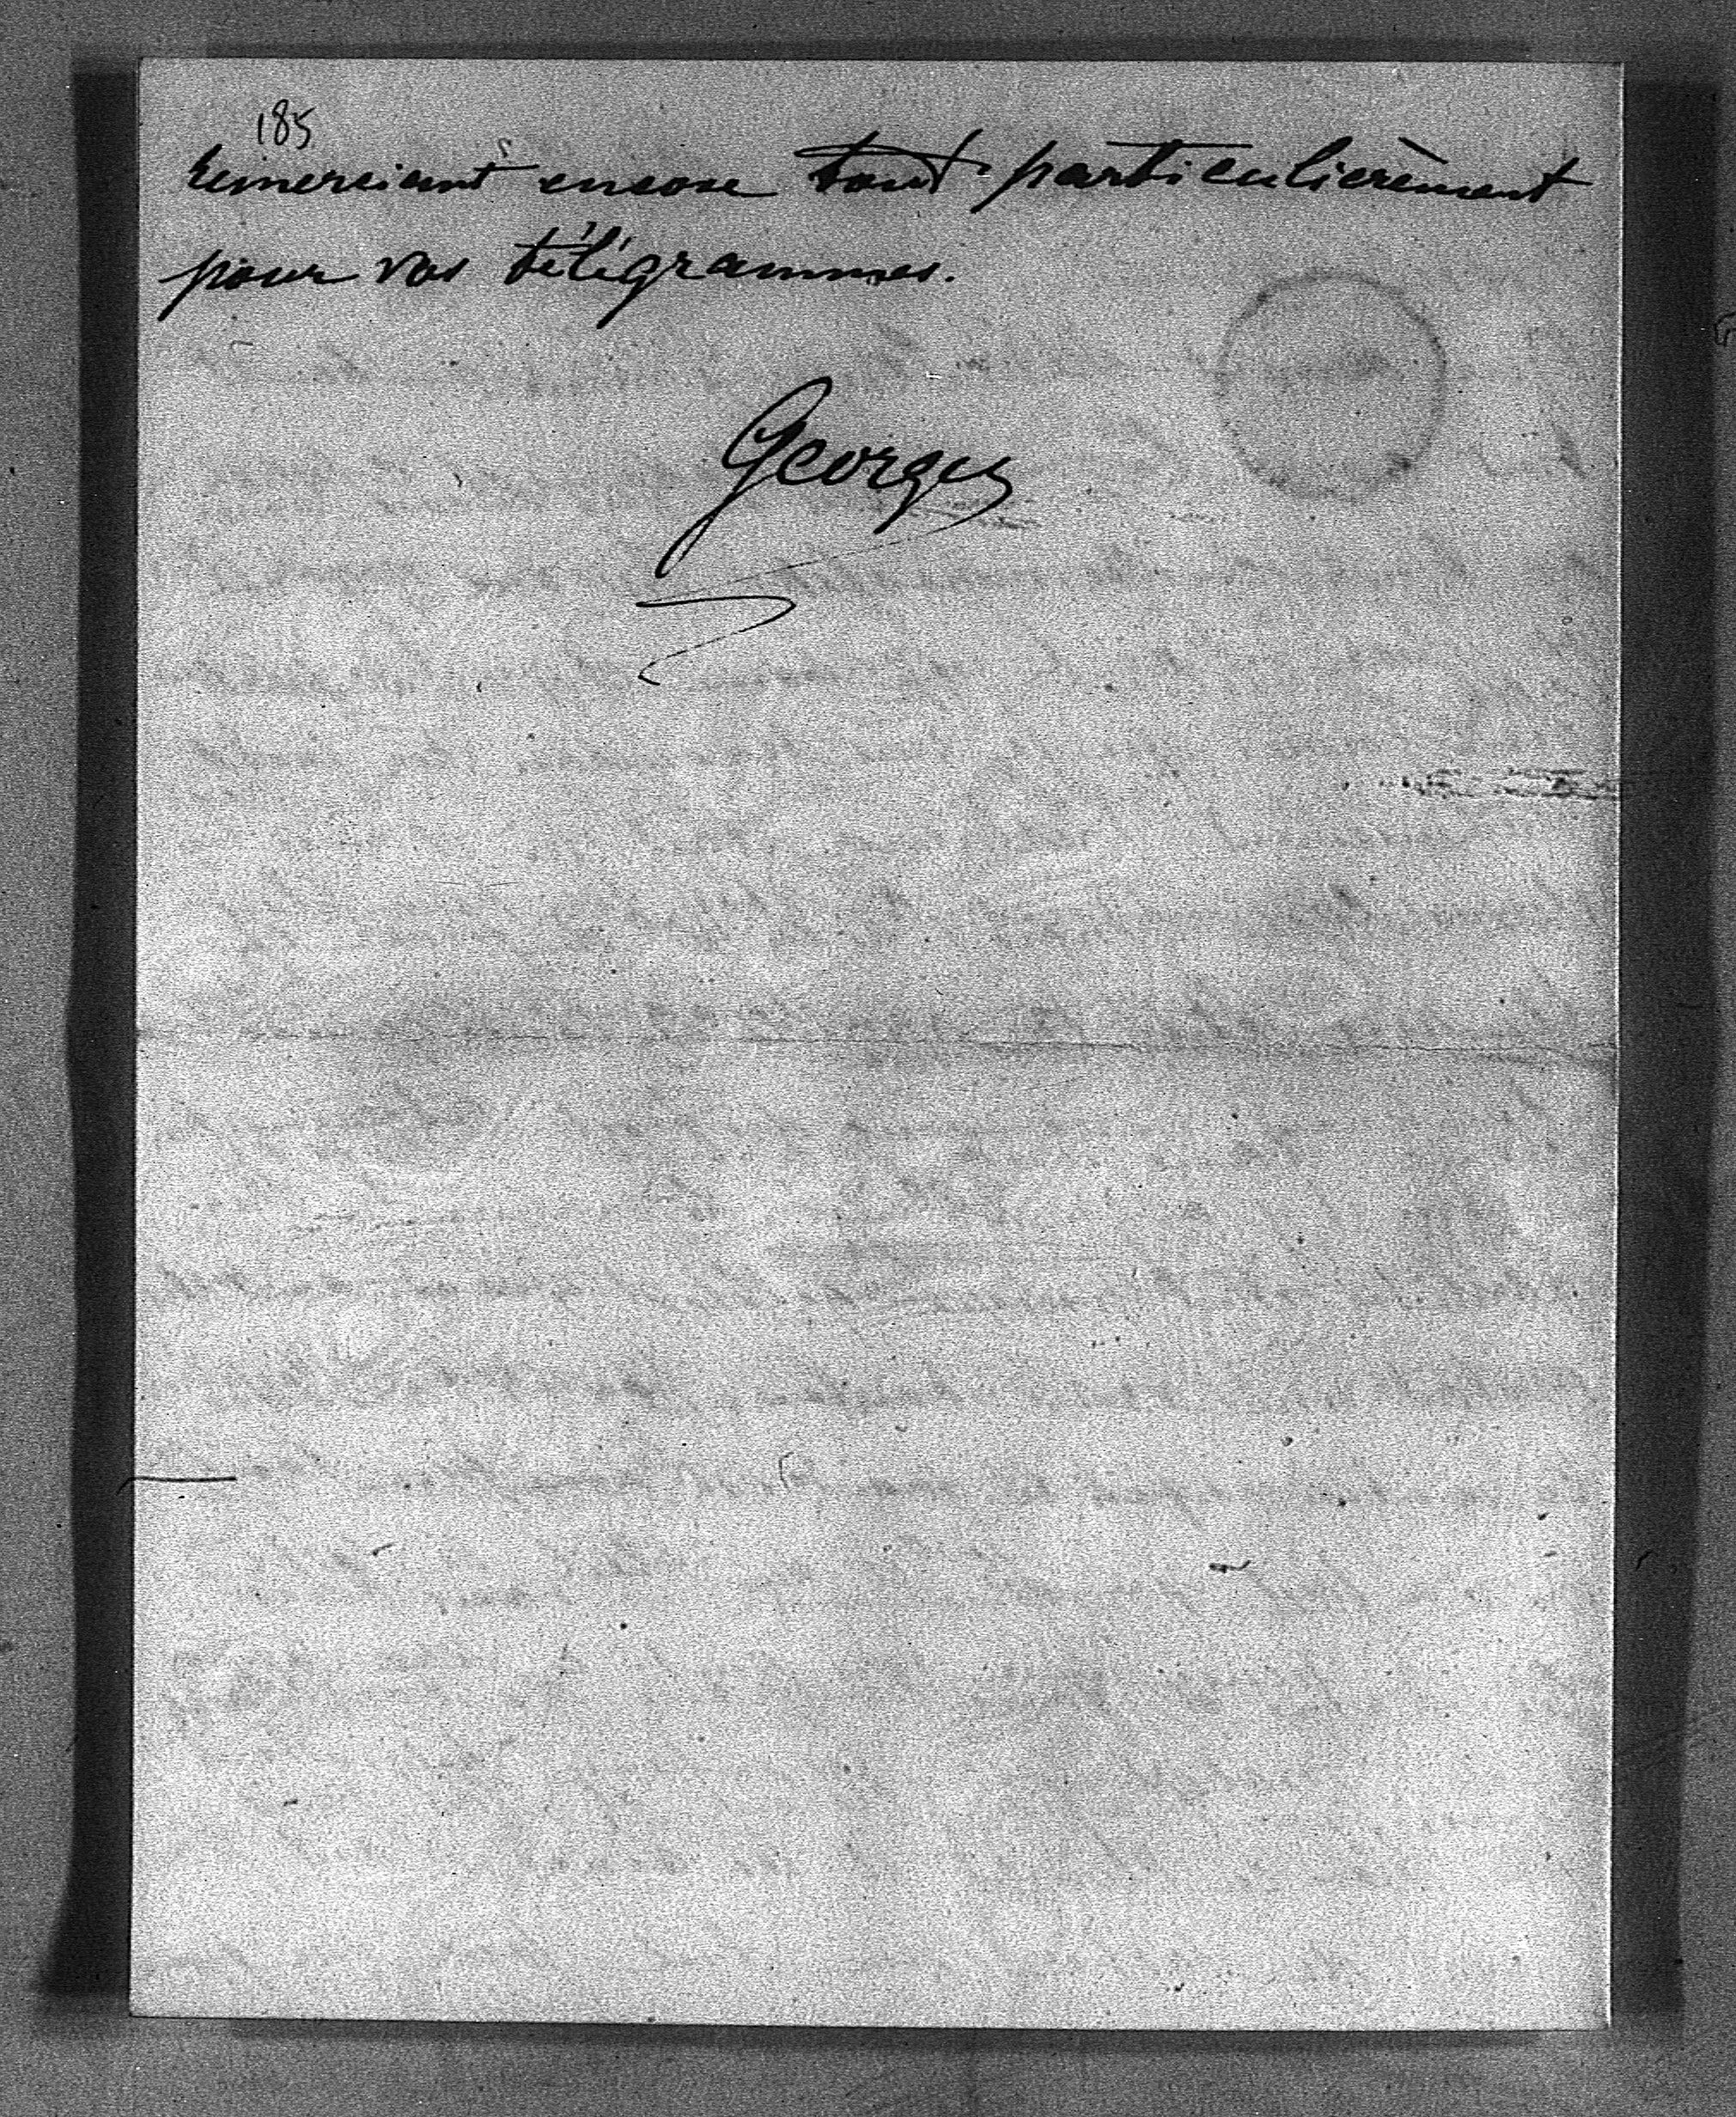 185
remerciant encore tout particulièrement
pour vos télégrammes.
Georges